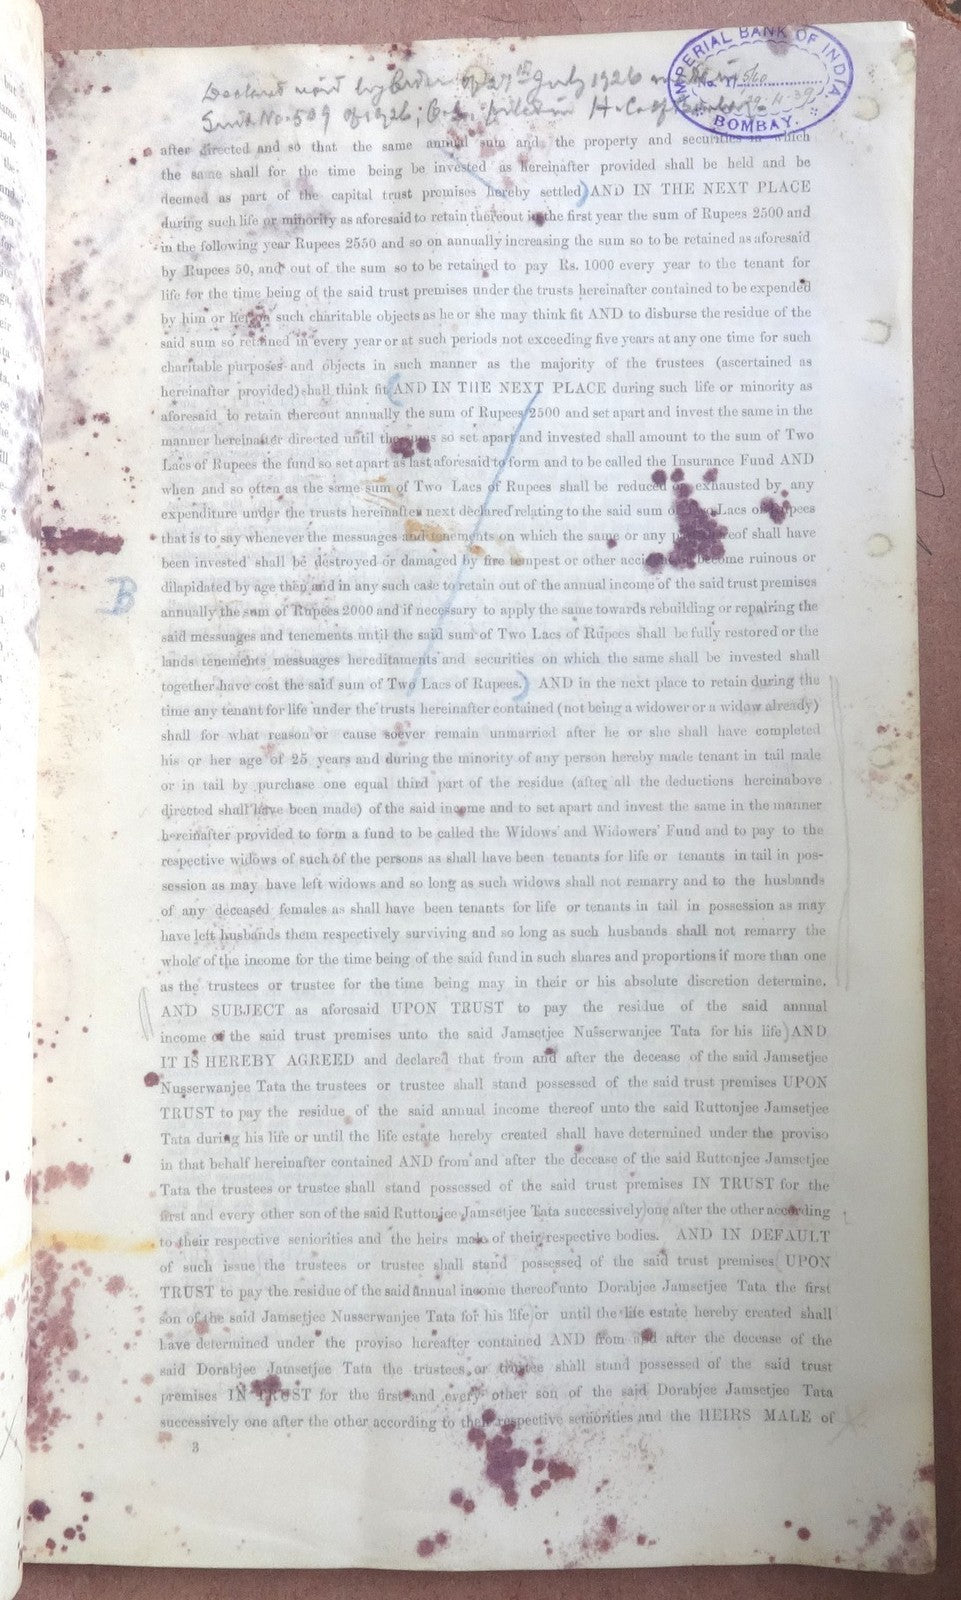 IMPERIAL BANK OF INDIA
No.
BOMBAY.
Declared void by Order of 27th July 1926 made in
Suit No. 509 of 1926; filed in H. C. of Bombay
after directed and so that the same annual sum and the property and securities in which
the same shall for the time being be invested as hereinafter provided shall be held and be
deemed as part of the capital trust premises hereby settled) AND IN THE NEXT PLACE
during such life or minority as aforesaid to retain thereout in the first year the sum of Rupees 2500 and
in the following year Rupees 2550 and so on annually increasing the sum so to be retained as aforesaid
by Rupees 50, and out of the sum so to be retained to pay Rs. 1000 every year to the tenant for
life for the time being of the said trust premises under the trusts hereinafter contained to be expended
by him or her on such charitable objects as he or she may think fit AND to disburse the residue of the
said sum so retained in every year or at such periods not exceeding five years at any one time for such
charitable purposes and objects in such manner as the majority of the trustees (ascertained as
hereinafter provided) shall think fit (AND IN THE NEXT PLACE during such life or minority as
aforesaid to retain thereout annually the sum of Rupees 2500 and set apart and invest the same in the
manner hereinafter directed until the sums so set apart and invested shall amount to the sum of Two
Lacs of Rupees the fund so set apart as last aforesaid to form and to be called the Insurance Fund AND
when and so often as the same sum of Two Lacs of Rupees shall be reduced or exhausted by any
expenditure under the trusts hereinafter next declared relating to the said sum of Two Lacs of Rupees
that is to say whenever the messuages and tenements on which the same or any part thereof shall have
been invested shall be destroyed or damaged by fire tempest or other accident or become ruinous or
B
dilapidated by age then and in any such case to retain out of the annual income of the said trust premises
annually the sum of Rupees 2000 and if necessary to apply the same towards rebuilding or repairing the
said messuages and tenements until the said sum of Two Lacs of Rupees shall be fully restored or the
lands tenements messuages hereditaments and securities on which the same shall be invested shall
together have cost the said sum of Two Lacs of Rupees.) AND in the next place to retain during the
time any tenant for life under the trusts hereinafter contained (not being a widower or a widow already)
shall for what reason or cause soever remain unmarried after he or she shall have completed
his or her age of 25 years and during the minority of any person hereby made tenant in tail male
or in tail by purchase one equal third part of the residue (after all the deductions hereinabove
directed shall have been made) of the said income and to set apart and invest the same in the manner
hereinafter provided to form a fund to be called the Widows' and Widowers' Fund and to pay to the
respective widows of such of the persons as shall have been tenants for life or tenants in tail in pos-
session as may have left widows and so long as such widows shall not remarry and to the husbands
of any deceased females as shall have been tenants for life or tenants in tail in possession as may
have left husbands them respectively surviving and so long as such husbands shall not remarry the
whole of the income for the time being of the said fund in such shares and proportions if more than one
as the trustees or trustee for the time being may in their or his absolute discretion determine.
AND SUBJECT as aforesaid UPON TRUST to pay the residue of the said annual
income of the said trust premises unto the said Jamsetjee Nusserwanjee Tata for his life) AND
IT IS HEREBY AGREED and declared that from and after the decease of the said Jamsetjee
Nusserwanjee Tata the trustees or trustee shall stand possessed of the said trust premises UPON
TRUST to pay the residue of the said annual income thereof unto the said Ruttonjee Jamsetjee
Tata during his life or until the life estate hereby created shall have determined under the proviso
in that behalf hereinafter contained AND from and after the decease of the said Ruttonjee Jamsetjee
Tata the trustees or trustee shall stand possessed of the said trust premises IN TRUST for the
first and every other son of the said Ruttonjee Jamsetjee Tata successively one after the other according
to their respective seniorities and the heirs male of their respective bodies. AND IN DEFAULT
of such issue the trustees or trustee shall stand possessed of the said trust premises UPON
TRUST to pay the residue of the said annual income thereof unto Dorabjee Jamsetjee Tata the first
son of the said Jamsetjee Nusserwanjee Tata for his life or until the life estate hereby created shall
have determined under the proviso hereafter contained AND from and after the decease of the
said Dorabjee Jamsetjee Tata the trustees or trustee shall stand possessed of the said trust
premises IN TRUST for the first and every other son of the said Dorabjee Jamsetjee Tata
successively one after the other according to their respective seniorities and the HEIRS MALE of
3